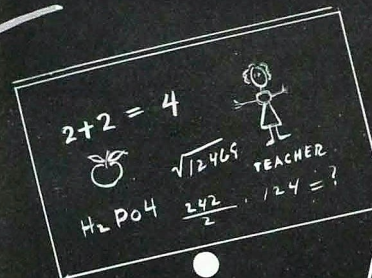 2+2 = 4
√12469 TEACHER
H₂PO4 242/2 . 124 = ?